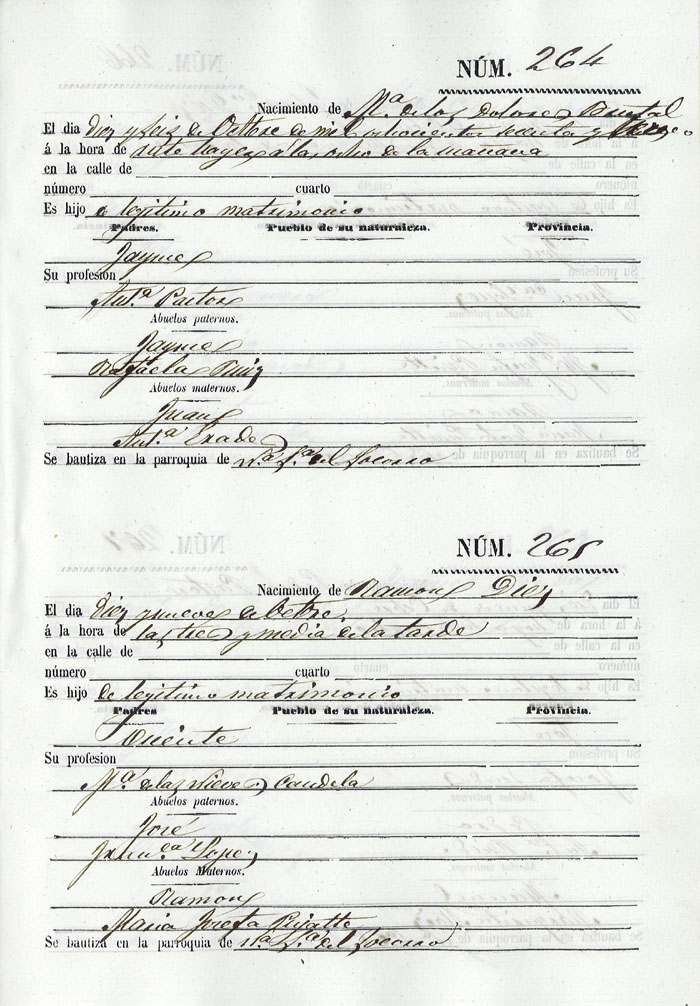 NÚM. 264
Nacimiento de Mª de los Dolores
El dia diez y seis de Octbre de mil ochocientos sesenta y
á la hora de siete a las ocho de la mañana
en la calle de
número cuarto
Es hijo de legitimo matrimonio
Padres. Pueblo de su naturaleza. Provincia.
Jayme
Su profesion
Antª Pastor
Abuelos paternos.
Jayme
Rafaela Ruiz
Abuelos maternos.
Juan
Antª
Se bautiza en la parroquia de Nª Sª del Socorro
NÚM. 265
Nacimiento de Ramon Diez
El dia diez y nueve de Octbre.
á la hora de las tres y media de la tarde
en la calle de
número cuarto
Es hijo de legitimo matrimonio
Padres Pueblo de su naturaleza. Provincia.
Vicente
Su profesion
Mª de las Nieves Candela
Abuelos paternos.
José
Francᶜᵃ Lopez
Abuelos Maternos.
Ramon
Maria Josefa
Se bautiza en la parroquia de Nª Sª del Socorro